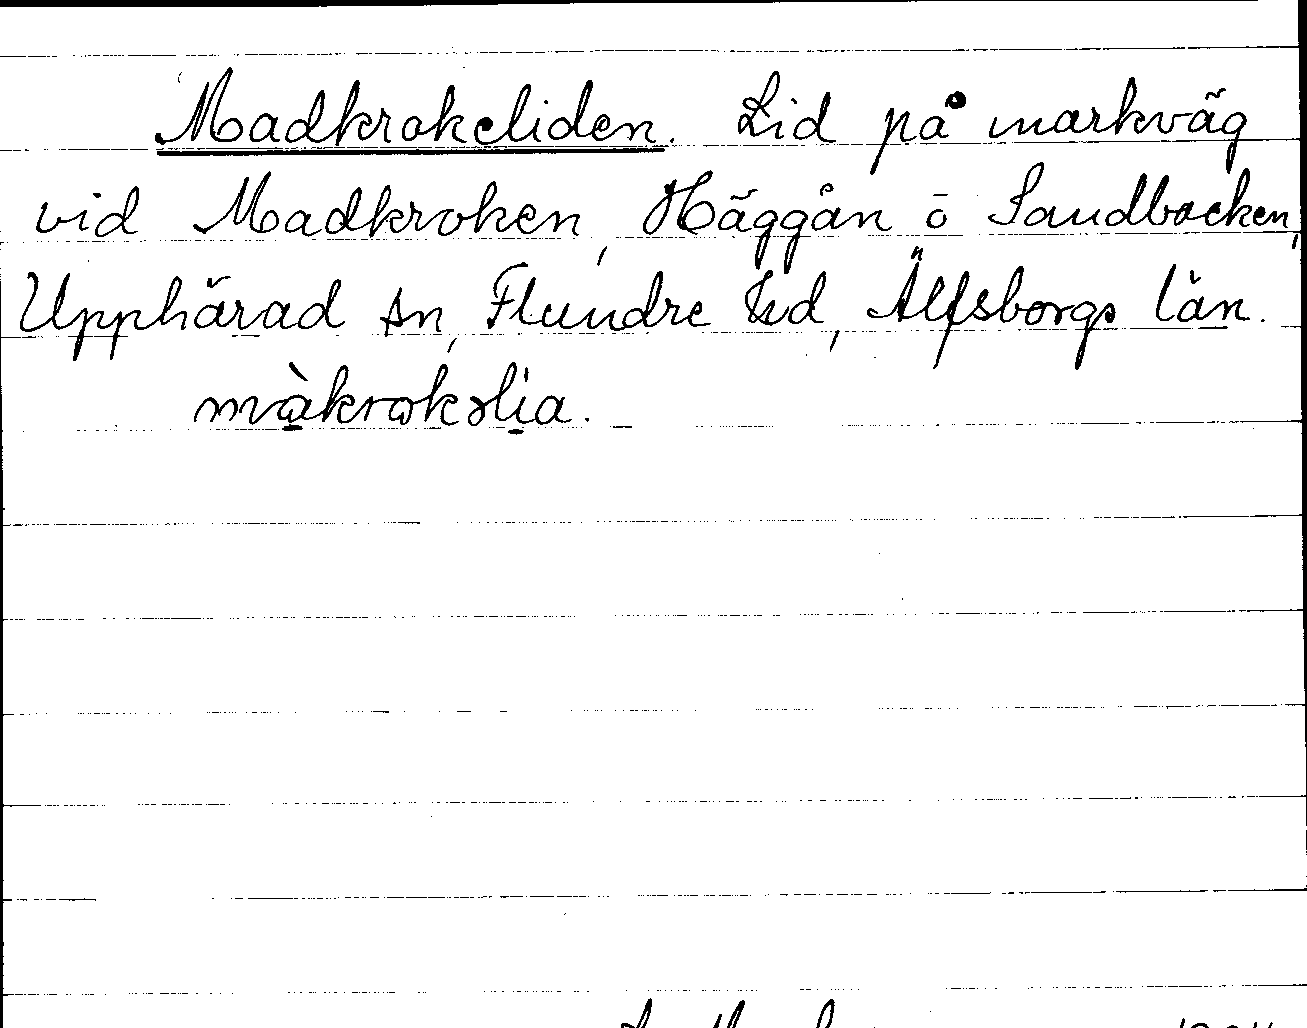 Madkrokeliden. Lid på markväg
vid Madkroken, Häggån ö Sandbacken,
Upphärad sn, Flundre hd, Älfsborgs län.
màkrokəlia.